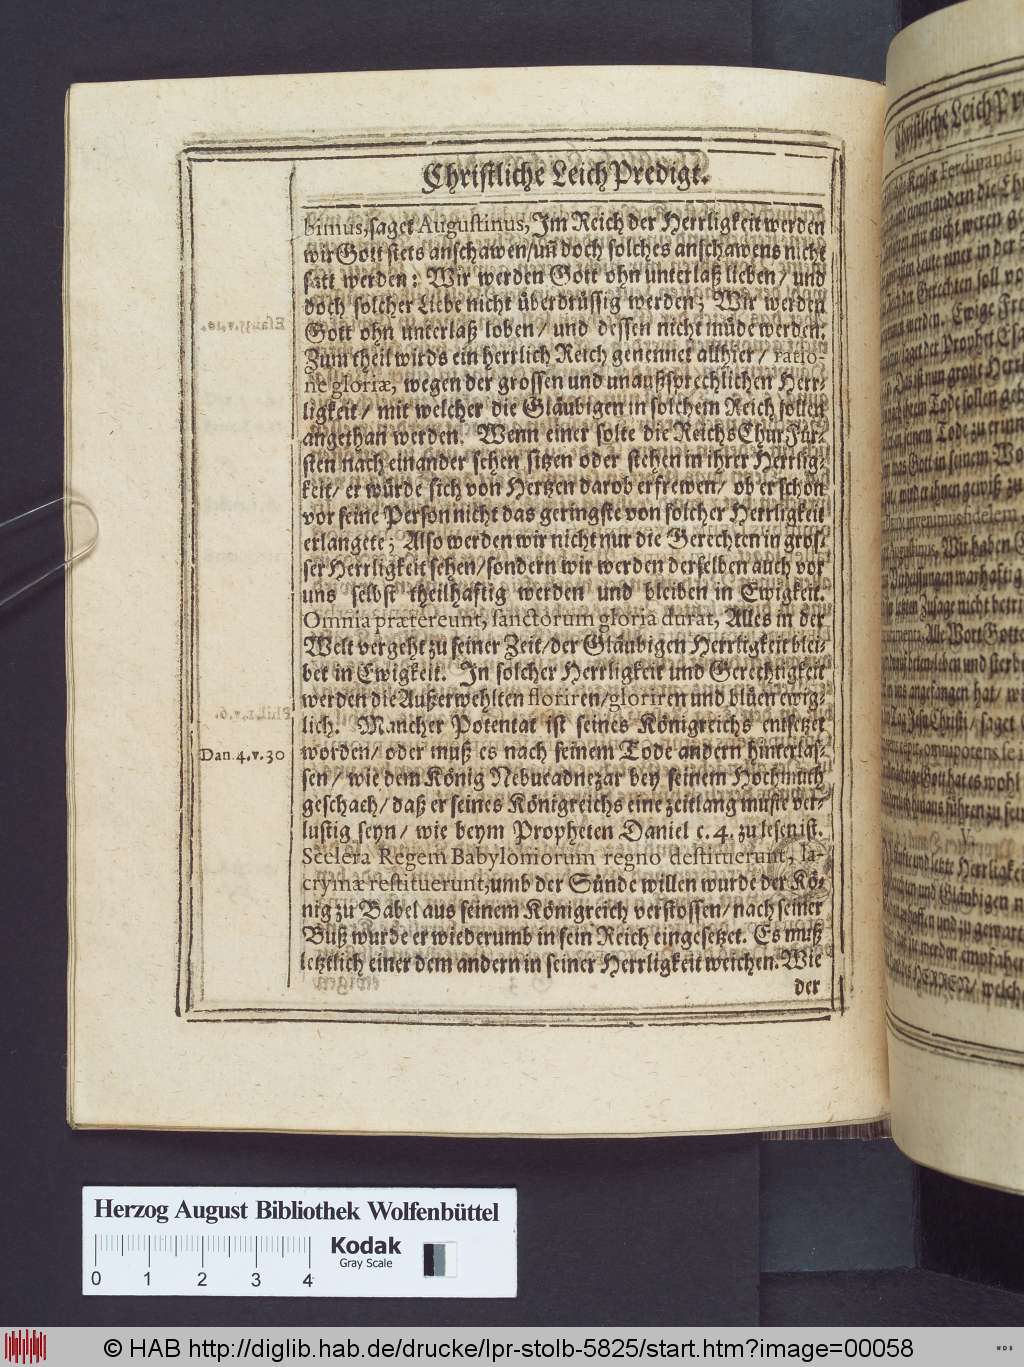 Christliche LeichPredigt.
bimus, saget Augustinus, Im Reich der Herrligkeit werden
wir Gott stets anschawen/ uñ doch solches anschawens nicht
satt werden: Wir werden Gott ohn unterlaß lieben/ und
doch solcher Liebe nicht überdrüssig werden; Wir werden
Gott ohn unterlaß loben/ und dessen nicht müde werden.
Zum theil wirds ein herrlich Reich genennet allhier/ ratio-
ne gloriæ, wegen der grossen und unaußsprechlichen Herr-
ligkeit/ mit welcher die Gläubigen in solchem Reich sollen
angethan werden. Wenn einer solte die ReichsChurFür-
sten nach einander sehen sitzen oder stehen in ihrer Herrlig-
keit/ er würde sich von Hertzen darob erfrewen/ ob er schon
vor seine Person nicht das geringste von solcher Herrligkeit
erlangete; Also werden wir nicht nur die Gerechten in gros-
ser Herrligkeit sehen/ sondern wir werden derselben auch vor
uns selbst theilhafftig werden und bleiben in Ewigkeit.
Omnia prætereunt, sanctorum gloria durat, Alles in der
Welt vergeht zu seiner Zeit/ der Gläubigen Herrligkeit blei-
bet in Ewigkeit. In solcher Herrligkeit und Gerechtigkeit
werden die Außerwehlten floriren/ gloriren und blüen ewig-
lich. Mancher Potentat ist seines Königreichs entsetzet
Dan. 4. v. 30
worden/ oder muß es nach seinem Tode andern hinterlas-
sen/ wie dem König Nebucadnezar bey seinem Hochmuth
geschach/ daß er seines Königreichs eine zeitlang muste ver-
lustig seyn/ wie beym Propheten Daniel c. 4. zu lesen ist.
Scelera Regem Babyloniorum regno destituerunt, la-
crymæ restituerunt, umb der Sünde willen wurde der Kö-
nig zu Babel aus seinem Königreich verstossen/ nach seiner
Buß wurde er wiederumb in sein Reich eingesetzet. Es muß
letztlich einer dem andern in seiner Herrligkeit weichen. Wie
der
Herzog August Bibliothek Wolfenbüttel
Kodak
Gray Scale
0 1 2 3 4
© HAB http://diglib.hab.de/drucke/lpr-stolb-5825/start.htm?image=00058